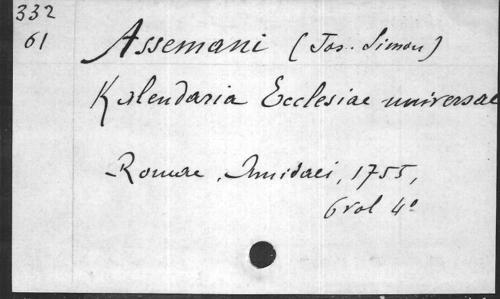 332
61
Assemani (Jos. Simon)
Kalendaria Ecclesiae universae
Romae, Amidaei, 1755,
6 vol 4°